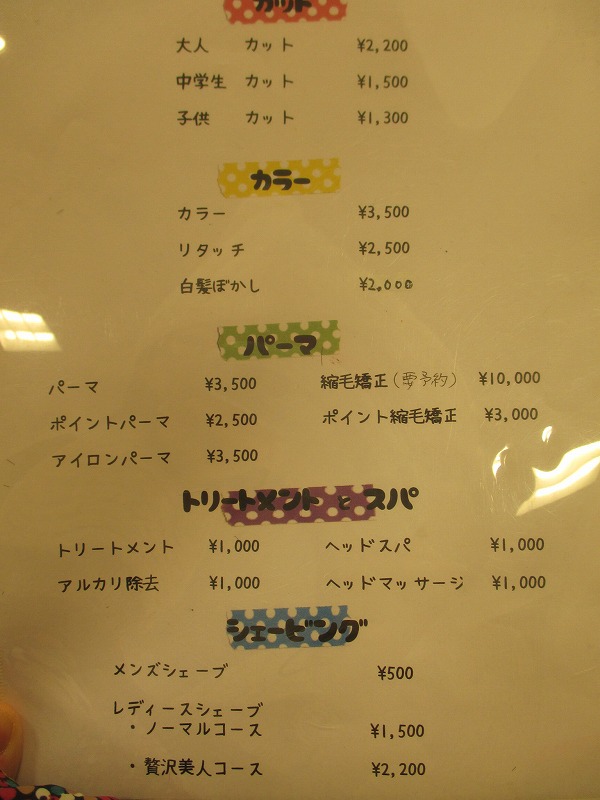 カット
大人 カット ¥2,200
中学生 カット ¥1,500
子供 カット ¥1,300
カラー
カラー ¥3,500
リタッチ ¥2,500
白髪ぼかし ¥2,000
パーマ
パーマ ¥3,500 縮毛矯正(要予約) ¥10,000
ポイントパーマ ¥2,500 ポイント縮毛矯正 ¥3,000
アイロンパーマ ¥3,500
トリートメント と スパ
トリートメント ¥1,000 ヘッドスパ ¥1,000
アルカリ除去 ¥1,000 ヘッドマッサージ ¥1,000
シェービング
メンズシェーブ ¥500
レディースシェーブ
・ノーマルコース ¥1,500
・贅沢美人コース ¥2,200